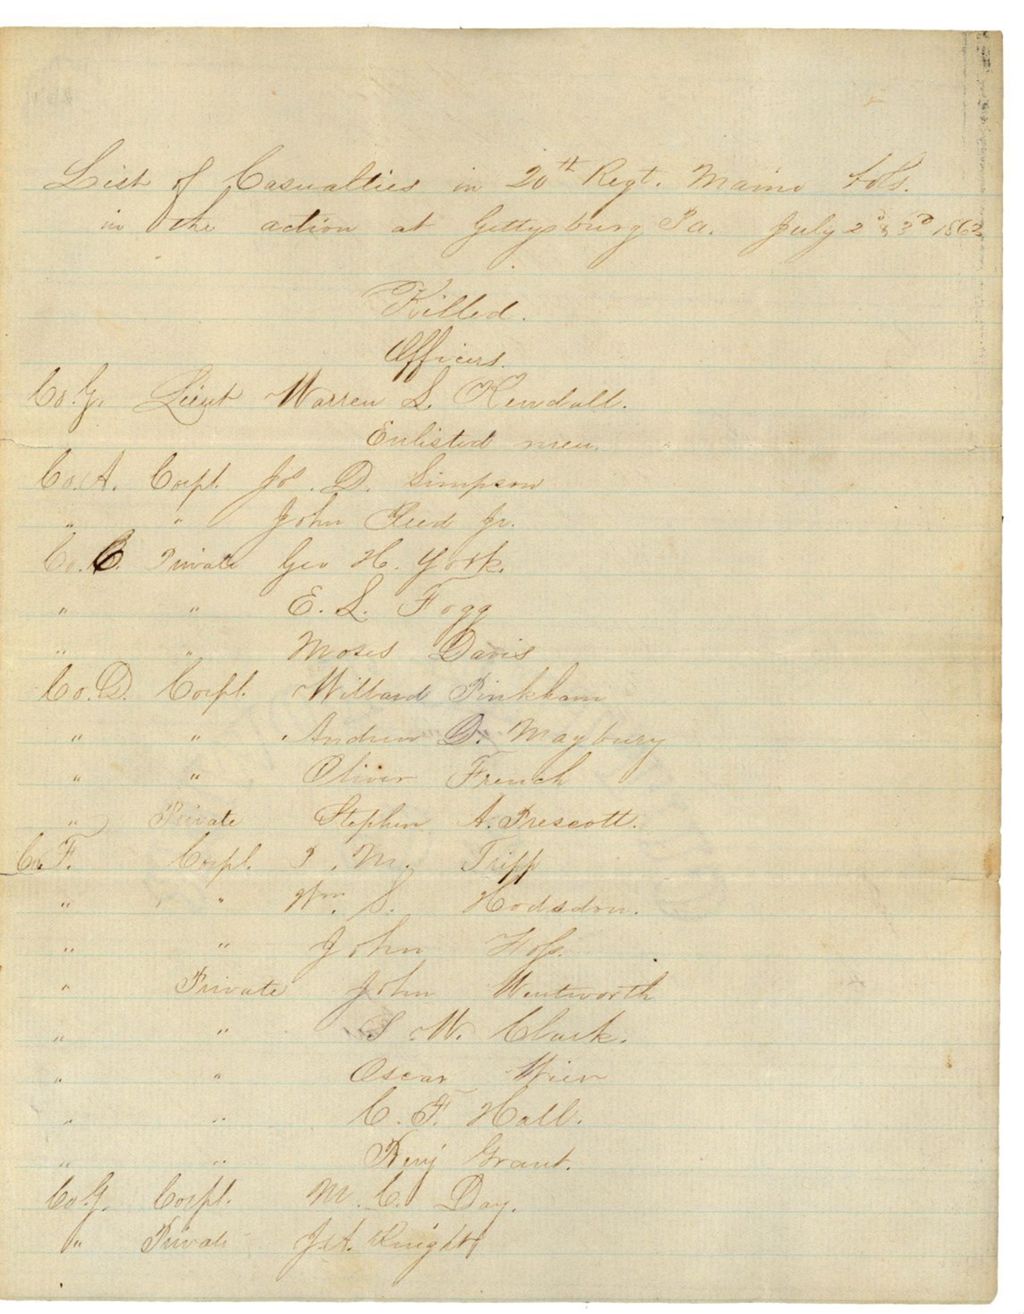 List of Casualties in 20th Regt. Maine Vols.
in the action at Gettysburg Pa. July 2d & 3d 1863
Killed.
Officers.
Co. G. Lieut Warren L. Kendall.
Enlisted men.
Co. A. Corpl. Jos. D. Simpson
" " John Reed Jr.
Co. C. Private Geo H. York.
" " E. L. Fogg
" " Moses Davis
Co. D. Corpl. Willard Pinkham
" " Andrew D. Maybury
" " Oliver French
" Private Stephen A. Prescott.
Co. F. Corpl. P. M. Tripp
" " Wm. S. Hodsdon.
" " John Foss.
" Private John Wentworth
" " S W. Clark.
" " Oscar Wier
" " C. F. Hall.
" " Benj Grant.
Co. G. Corpl. M. C. Day.
" Private J. A. Knight